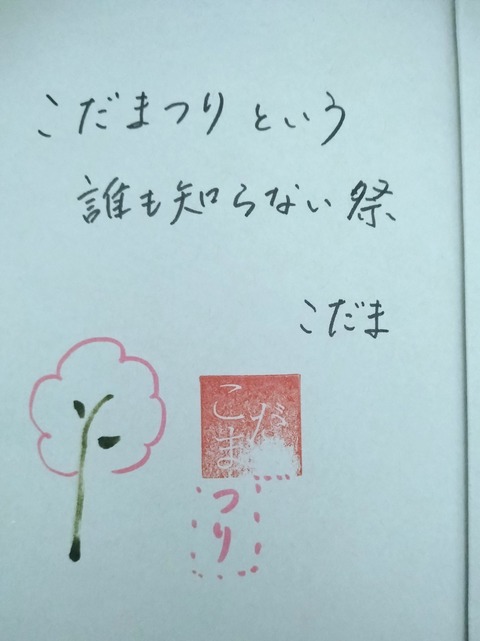 こだまつりという
誰も知らない祭
こだま
こだま
つり